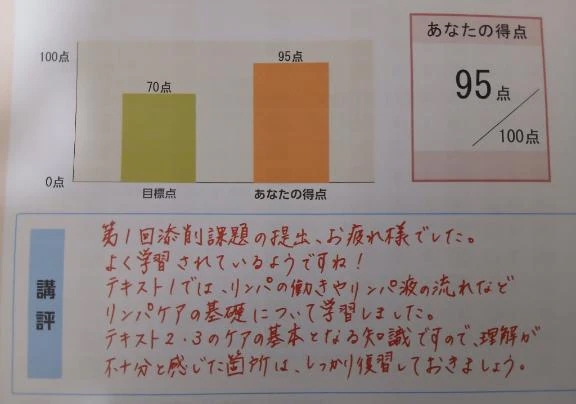 100点
70点
95点
0点
目標点
あなたの得点
あなたの得点
95点
100点
講評
第1回添削課題の提出、お疲れ様でした。
よく学習されているようですね!
テキスト1では、リンパの働きやリンパ液の流れなど
リンパケアの基礎について学習しました。
テキスト2・3のケアの基本となる知識ですので、理解が
不十分と感じた箇所は、しっかり復習しておきましょう。